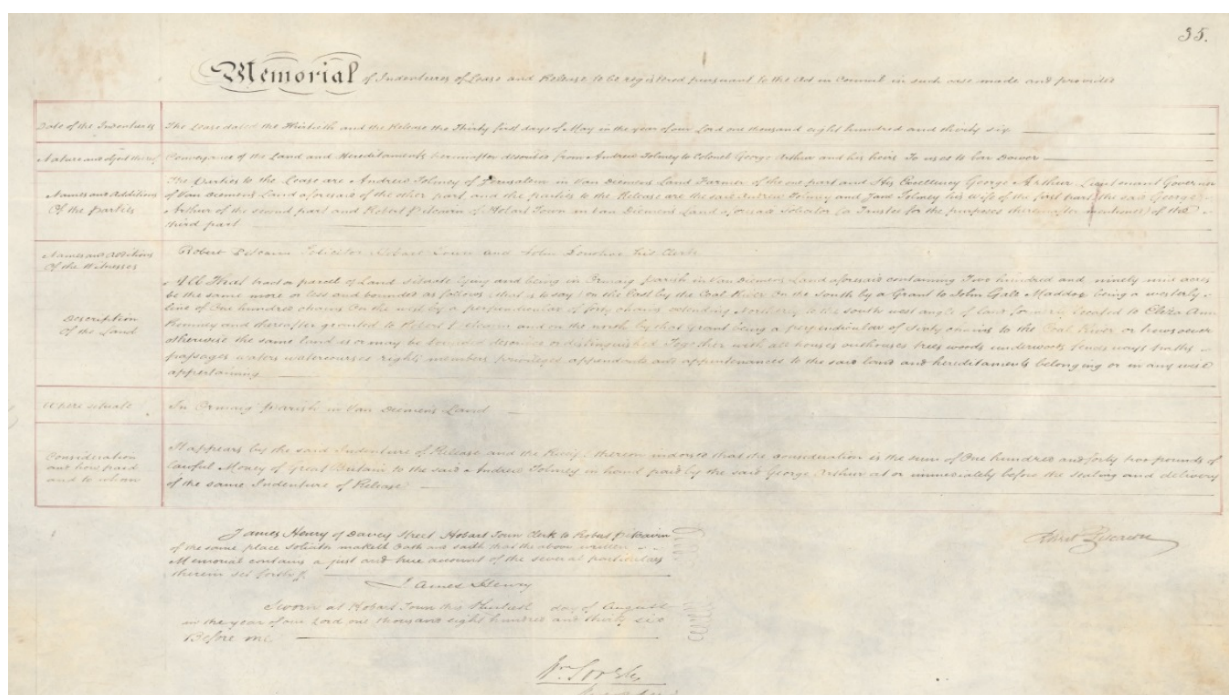 35.
Memorial of Indentures of Lease and Release to be registered pursuant to the Act in Council in such case made and provided
Date of the Indentures
The Lease dated the Thirtieth and the Release the Thirty first days of May in the year of our Lord one thousand eight hundred and thirty six
Nature and object thereof
Conveyance of the Land and Hereditaments hereinafter described from Andrew Tolmey to Colonel George Arthur and his heirs To uses to bar Dower
Names and Additions
Of the parties
The Parties to the Lease are Andrew Tolmey of Jerusalem in Van Diemens Land Farmer of the one part and His Excellency George Arthur Lieutenant Governor
of Van Diemens Land aforesaid of the other part, and the parties to the Release are the said Andrew Tolmey and Jane Tolmey his wife of the first part the said George
Arthur of the second part and Robert Pitcairn of Hobart Town in Van Diemens Land aforesaid Solicitor (a Trustee for the purposes therein mentioned) of the
third part
Names and Additions
Of the Witnesses
Robert Pitcairn Solicitor Hobart Town and John his Clerk
Description
Of the Land
All that tract or parcel of Land situate lying and being in Ormaig parish in Van Diemens Land aforesaid containing Two hundred and ninety nine acres
be the same more or less and bounded as follows (that is to say) on the East by the Coal River On the South by a Grant to John Maddox being a westerly
line of One hundred chains On the west by a perpendicular of forty chains extending Northerly to the south west angle of land formerly located to Eliza Ann
Kennedy and thereafter granted to Robert and on the north by that grant being a perpendicular of Sixty chains to the Coal River or howsoever
otherwise the same land is or may be bounded described or distinguished Together with all houses outhouses trees woods underwoods fences ways paths
passages waters watercourses rights members privileges appendants and appurtenances to the said land and hereditaments belonging or in any wise
appertaining
Where situate
In Ormaig Parish in Van Diemens Land
Consideration
and how paid
and to whom
It appears by the said Indenture of Release and the Receipt thereon indorsed that the consideration is the sum of One hundred and forty two pounds of
Lawful Money of Great Britain to the said Andrew Tolmey in hand paid by the said George Arthur at or immediately before the sealing and delivery
of the same Indenture of Release
James Henry of Davey Street Hobart Town Clerk to Robert Pitcairn
of the same place Solicitor maketh Oath and saith that the above written
Memorial contains a just and true account of the several particulars
therein set forth
James Henry
Robert Pitcairn
Sworn at Hobart Town this Thirtieth day of August
in the year of our Lord one thousand eight hundred and thirty six
Before me